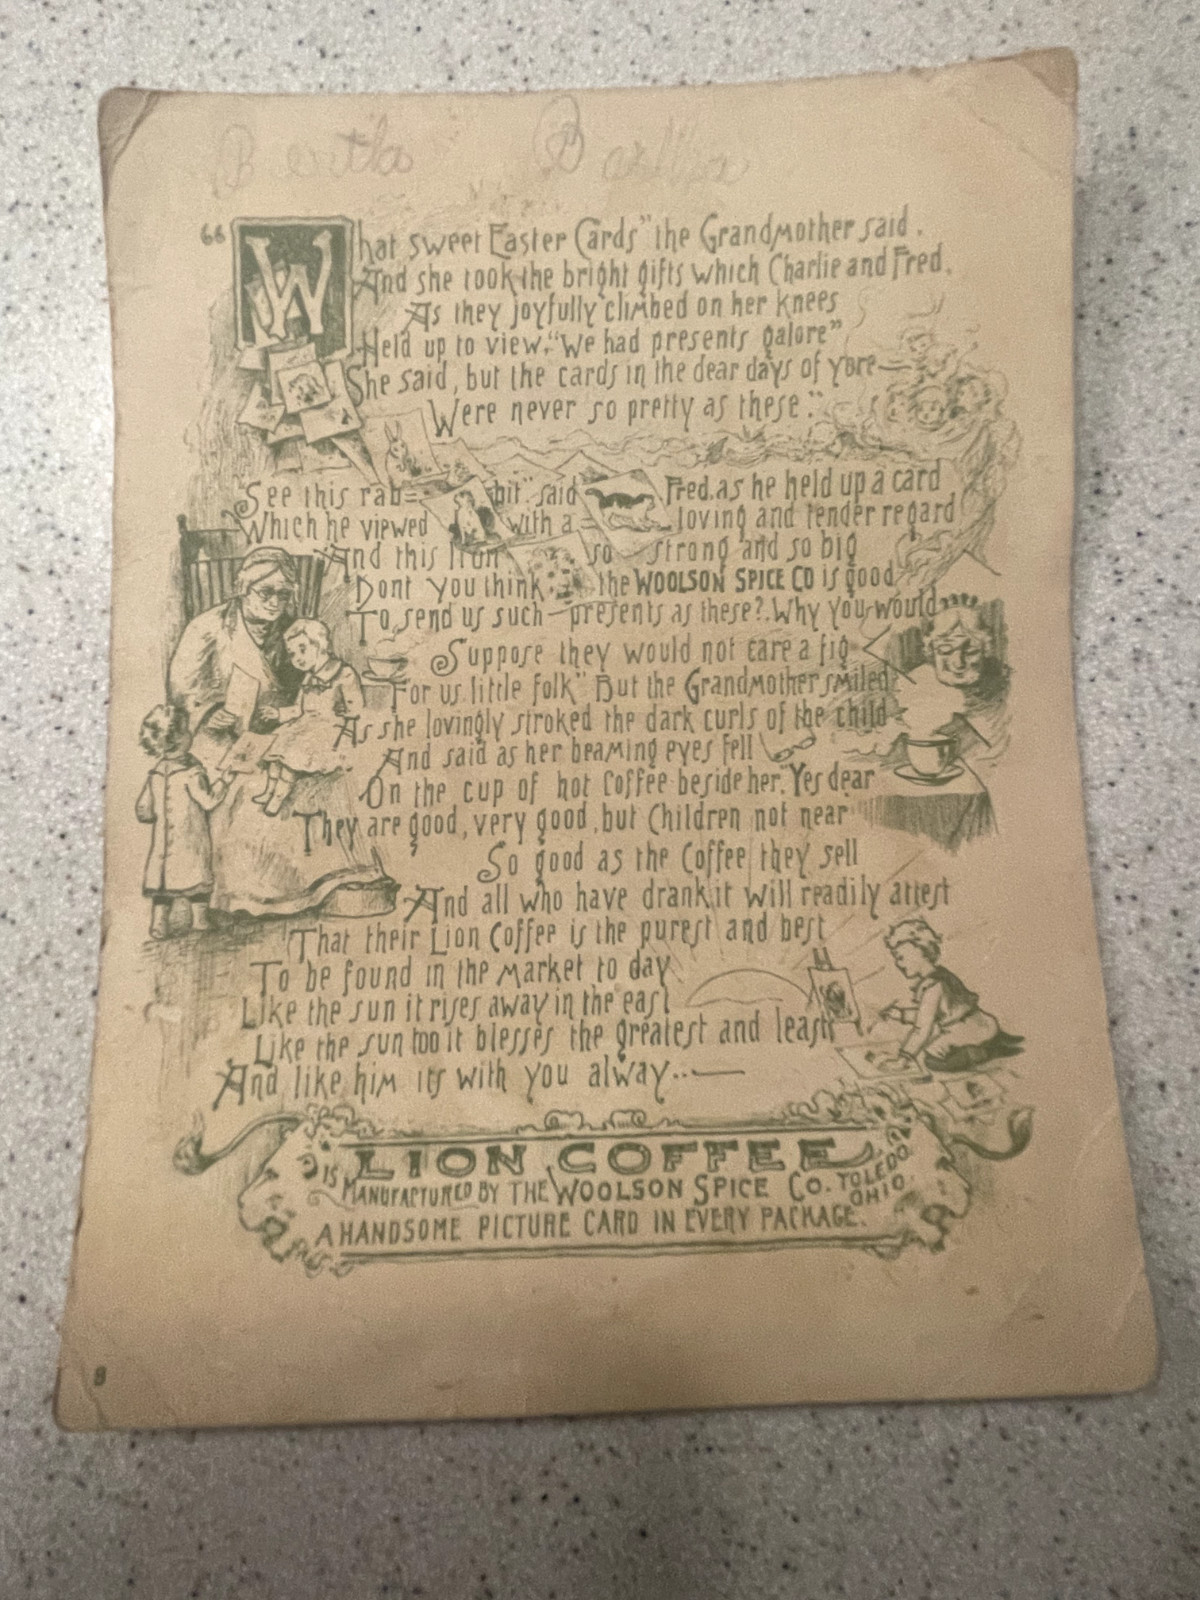 "What sweet Easter Cards" the Grandmother said.
And she took the bright gifts which Charlie and Fred.
As they joyfully climbed on her knees
Held up to view, "We had presents galore"
She said, but the cards in the dear days of yore—
Were never so pretty as these."
See this rab= bit" said Fred. as he held up a card
Which he viewed with a = loving and tender regard
And this lion so strong and so big
Dont you think the WOOLSON SPICE CO is good
To send us such — presents as these? Why you would
Suppose they would not care a fig
For us little folk" But the Grandmother smiled
As she lovingly stroked the dark curls of the child
And said as her beaming eyes fell
On the cup of hot Coffee beside her. Yes dear
They are good, very good, but Children not near
So good as the Coffee they sell
And all who have drank it will readily attest
That their Lion Coffee is the purest and best
To be found in the market to day
Like the sun it rises away in the east
Like the sun too it blesses the greatest and least
And like him its with you alway..—
LION COFFEE
IS MANUFACTURED BY THE WOOLSON SPICE CO. TOLEDO OHIO.
A HANDSOME PICTURE CARD IN EVERY PACKAGE.